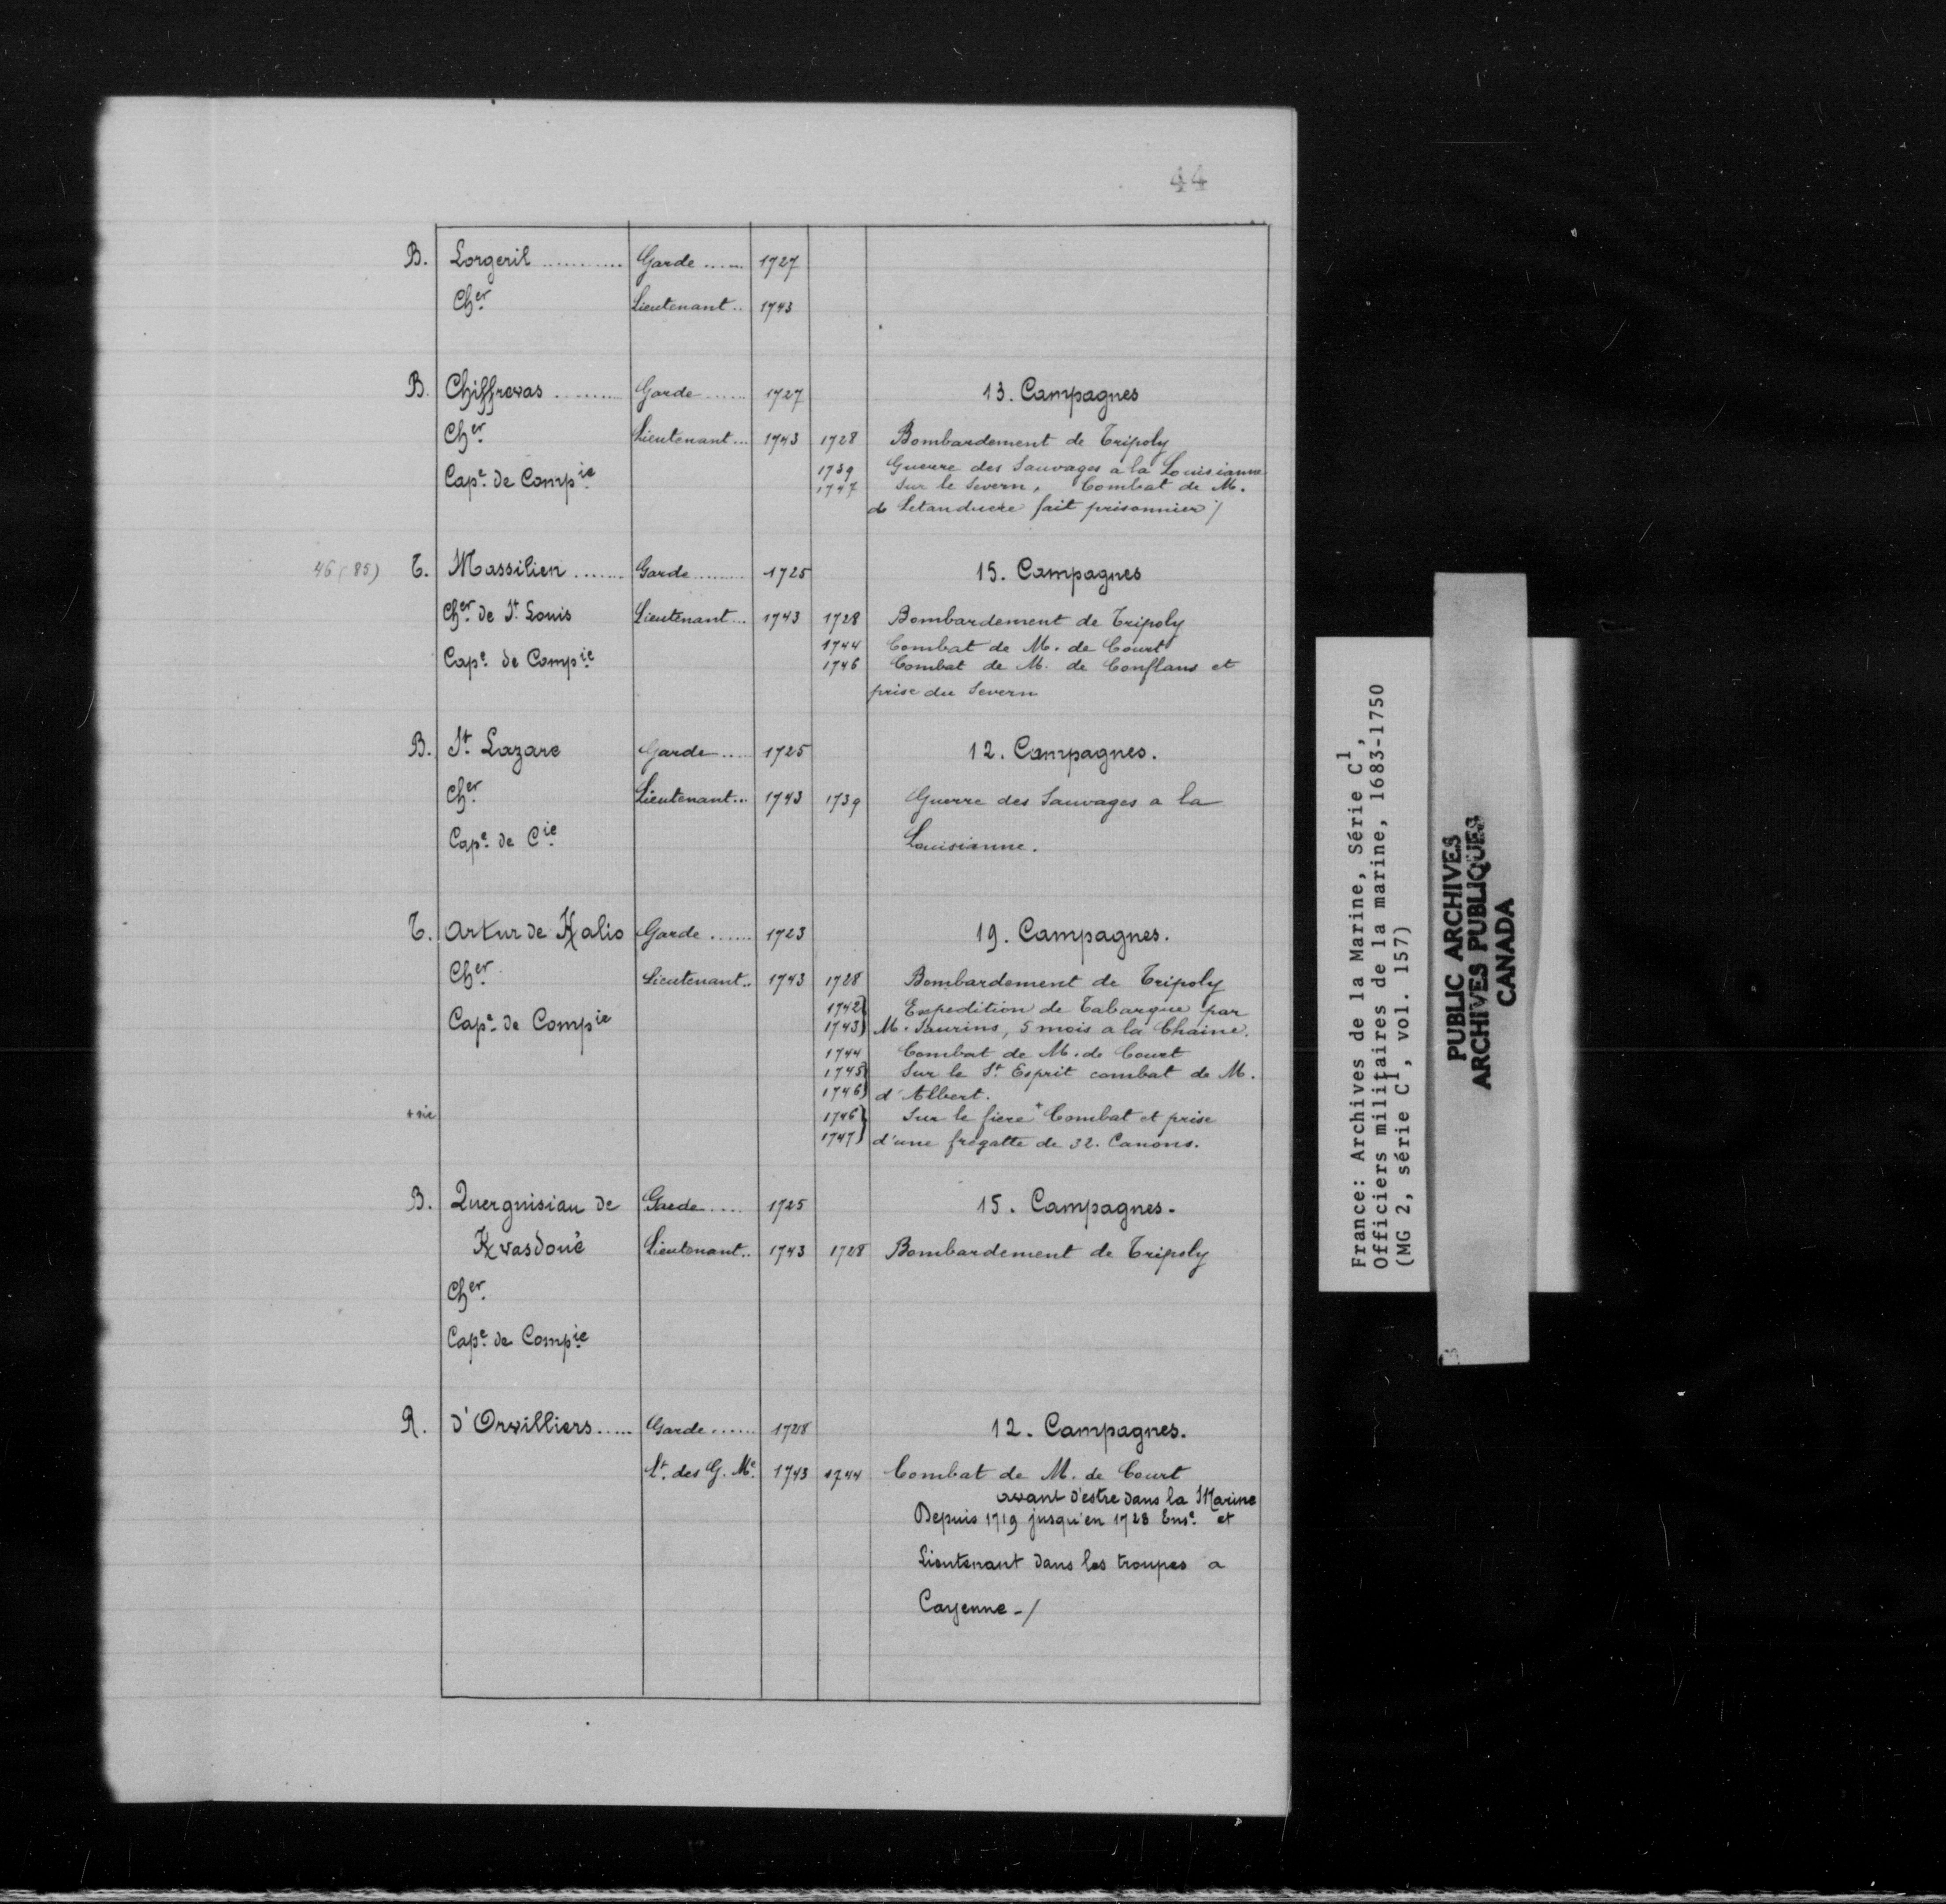 44
B. Lorgeril ............ Garde ...... 1727
Cher Lieutenant .. 1743
B. Chiffrevas ......... Garde ...... 1727 13. Campagnes
Cher Lieutenant ... 1743 1728 Bombardement de Tripoly
1739 Guerre des Sauvages a la Louisianne
Cape de Compie 1747 Sur le Severn, Combat de M.
de Letanduere fait prisonnier /
46 (85) T. Massilien ....... Garde ......... 1725 15. Campagnes
Cher de St Louis Lieutenant ... 1743 1728 Bombardement de Tripoly
1744 Combat de M. de Court
Cape de Compie 1746 Combat de M. de Conflans et
prise du Severn
B. St Lazare Garde .... 1725 12. Campagnes.
Cher Lieutenant ... 1743 1739 Guerre des Sauvages a la
Cape de Cie Louisianne.
T. Artur de Kalio Garde ....... 1723 19. Campagnes.
Cher Lieutenant .. 1743 1728 Bombardement de Tripoly
1742} Expedition de Tabarque par
Cape de Compie 1743} M. Saurins, 5 mois a la Chaine.
1744 Combat de M. de Court
1745} Sur le St Esprit combat de M.
1746} d'Albert.
+ sic 1746} Sur le fiere + Combat et prise
1747} d'une fregatte de 32. Canons.
B. Querguisiau de Garde .... 1725 15. Campagnes.
Kvasdoué Lieutenant .. 1743 1728 Bombardement de Tripoly
Cher
Cape de Compie
R. d'Orvilliers ..... Garde ...... 1728 12. Campagnes.
Lt. des G. Me. 1743 1744 Combat de M. de Court
avant d'estre dans la Marine
Depuis 1719 jusqu'en 1728 Ense. et
Lieutenant dans les troupes a
Cayenne - /
France: Archives de la Marine, Série C1,
Officiers militaires de la marine, 1683-1750
(MG 2, série C1, vol. 157)
PUBLIC ARCHIVES
ARCHIVES PUBLIQUES
CANADA